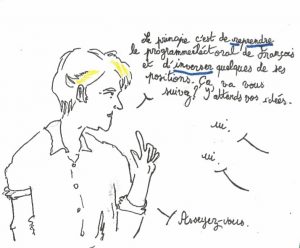 Le principe c'est de reprendre
le programme éléctoral de François
et d'inverser quelques de ses
positions. Ça va vous
suivez ? J'attends vos idées.
ui.
ui.
Asseyez-vous.